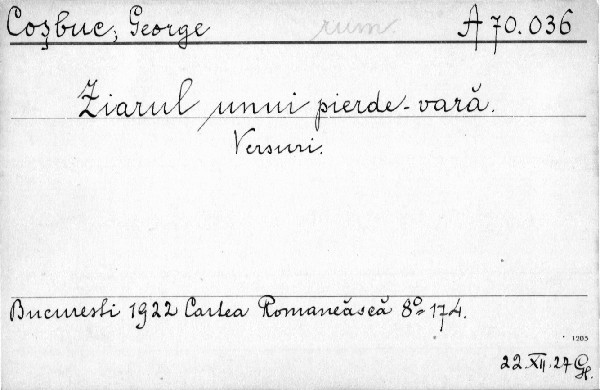 Coşbuc, George rum. A 70.036
Ziarul unui pierde-vară.
Versuri.
Bucuresti 1922 Cartea Romanéască 8° 174.
1205
22.XII.27